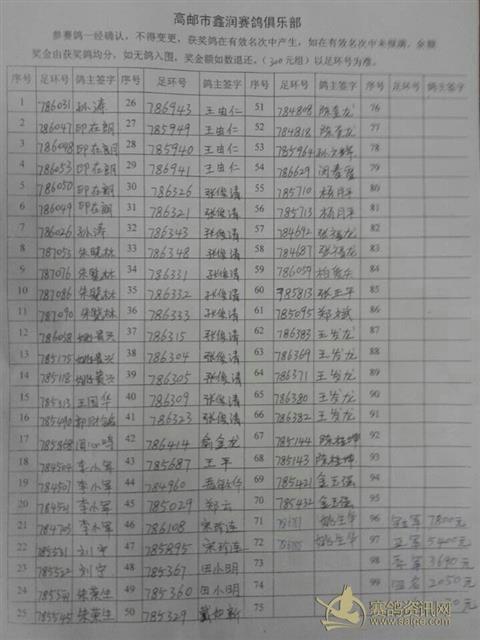 高邮市鑫润赛鸽俱乐部
参赛鸽一经确认，不得变更，获奖鸽在有效名次中产生，如在有效名次中未报满，余额
奖金由获奖鸽均分，如无鸽入围，奖金额如数退还。（300元组）以足环号为准。
序号 足环号 鸽主签字 序号 足环号 鸽主签字 序号 足环号 鸽主签字 序号 足环号 鸽主签字
1 786031 孙涛 26 786943 王由仁 51 784808 76
2 786047 印在朗 27 785949 王由仁 52 784818 77
3 786048 印在朗 28 785940 王由仁 53 785964 78
4 786053 印在朗 29 786941 王由仁 54 786629 79
5 786050 印在朗 30 786326 张俊清 55 785710 杨月平 80
6 786049 印在朗 31 786321 张俊清 56 785713 杨月平 81
7 786026 孙涛 32 786343 张俊清 57 784692 张福龙 82
8 787053 朱晓林 33 786348 张俊清 58 784687 张福龙 83
9 787076 朱晓林 34 786331 张俊清 59 786059 84
10 787086 朱晓林 35 786332 张俊清 60 985813 张正平 85
11 787090 朱晓林 36 786333 张俊清 61 785095 郑文斌 86
12 786058 37 786315 张俊清 62 786383 王发龙 87
13 785175 38 786304 张俊清 63 786369 王发龙 88
14 785118 39 786305 张俊清 64 786371 王发龙 89
15 785313 王国华 40 786309 张俊清 65 786380 王发龙 90
16 785490 41 786323 张俊清 66 786382 王发龙 91
17 785868 42 786414 俞金龙 67 785144 陈桂坤 92
18 784504 李小军 43 785687 王平 68 785143 陈桂坤 93
19 784501 李小军 44 784960 69 785421 金玉强 94
20 784521 李小军 45 785029 郑云 70 785432 金玉强 95
21 784705 李小军 46 786108 宋玲连 71 姚生华 96 冠军 7800元
22 785531 刘宁 47 785895 宋玲连 72 姚生华 97 亚军 5400元
23 785522 刘宁 48 785367 田小明 73 98 季军 3690元
24 785541 朱荣生 49 785360 田小明 74 99 2050元
25 785545 朱荣生 50 785329 75
赛鸽资讯网
www.saige.com